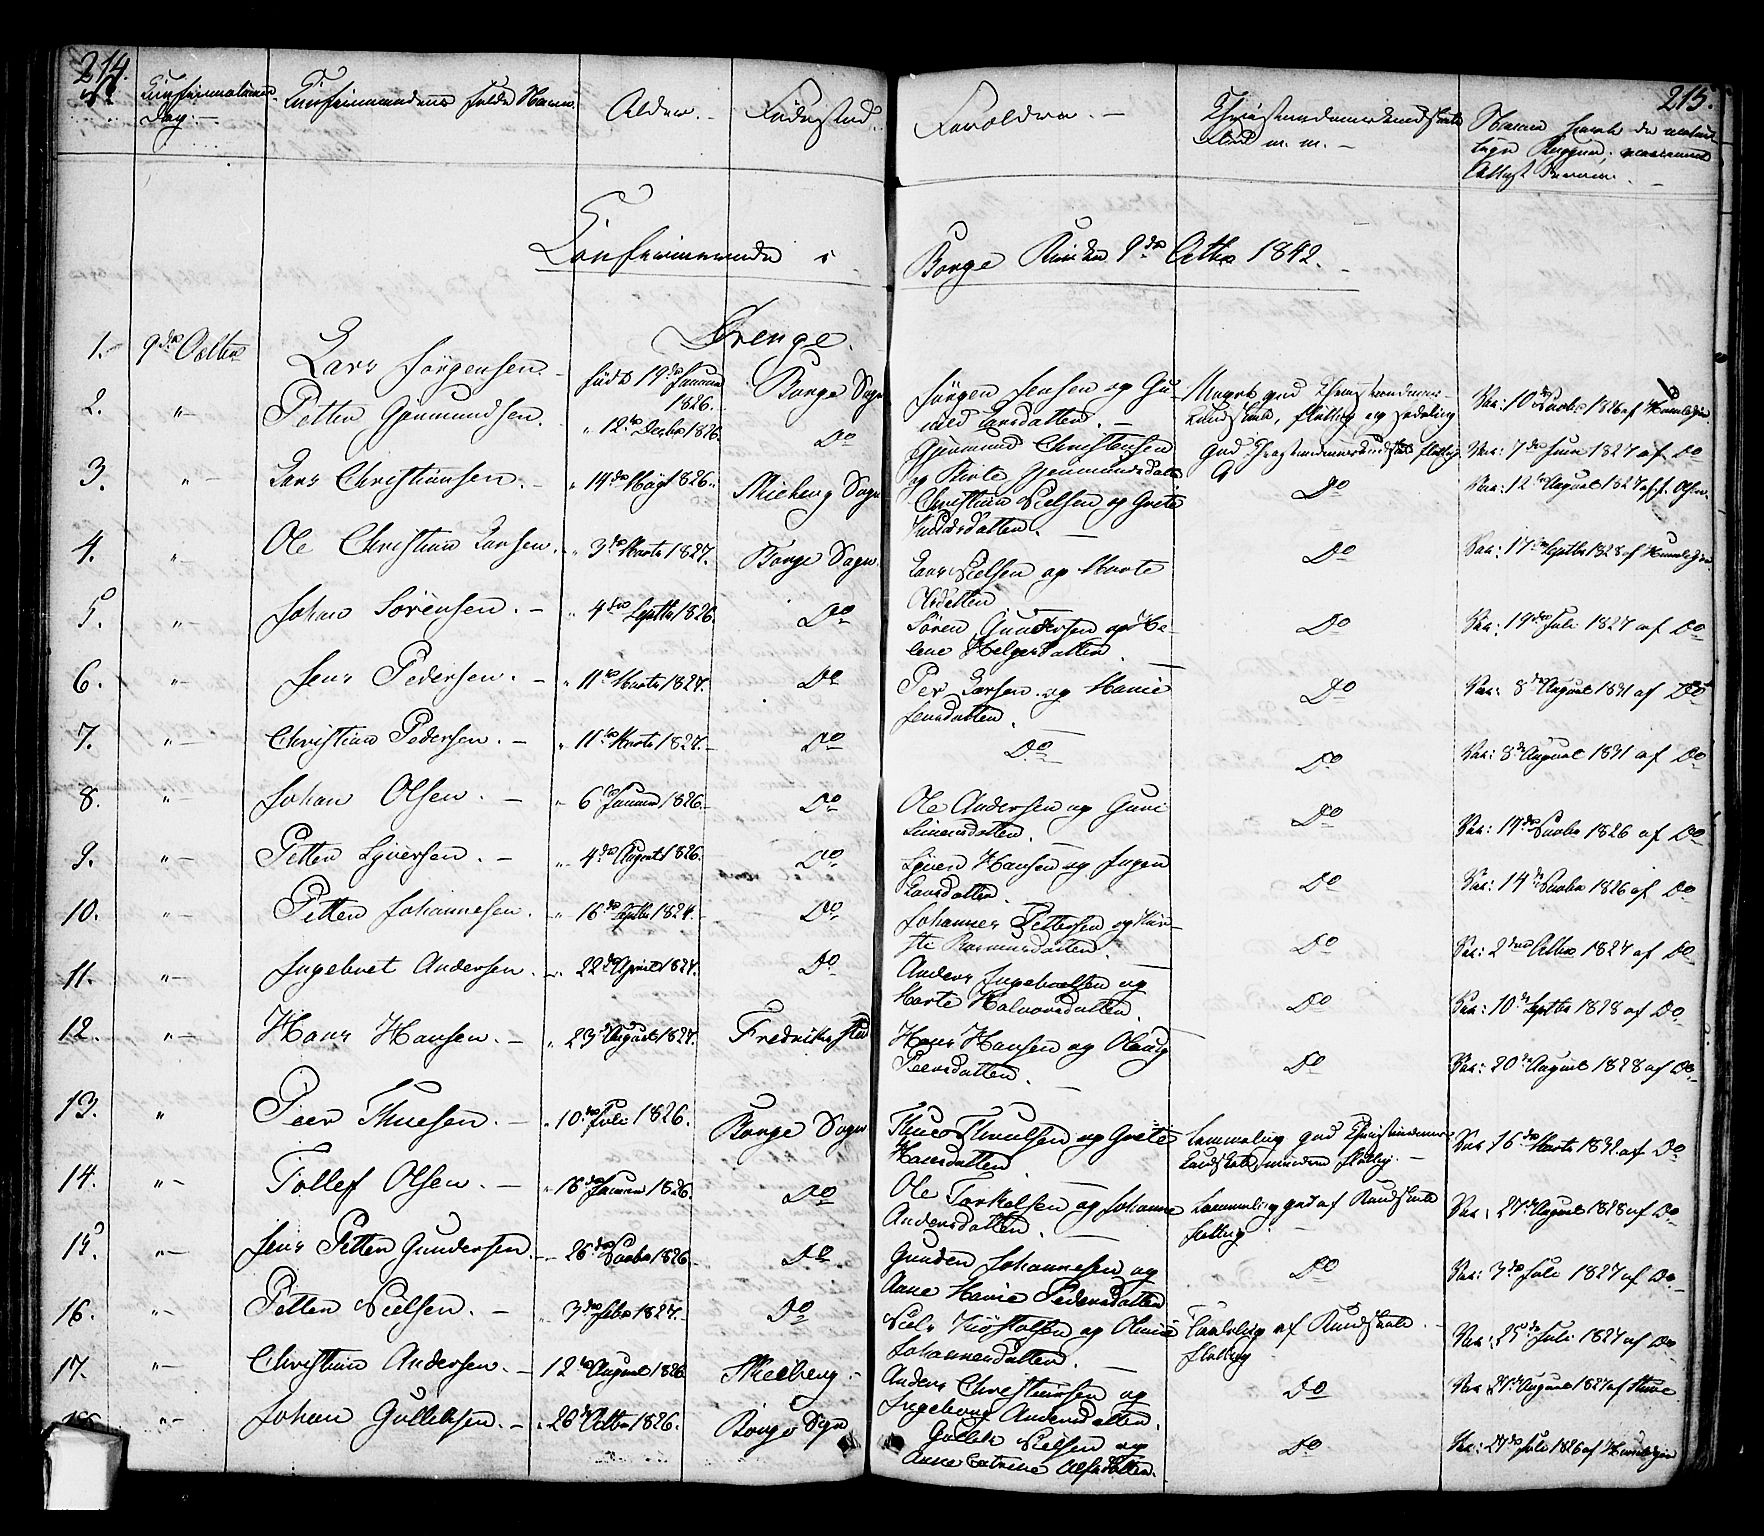 214.
No
Confirmations
Dag.
Confirmandens fulde Navn.
Alder.
Fødested.
Forældre.
Christendomskundskab
Flid m. m.
215.
Confirmerede i
Borge Kirke 9de Octbr 1842.
Drenge.
1. 9de Octbr Lars Jørgensen. født 19de Januar 1826. Borge Sogn Jørgen Jensen og Gunild Larsdatter. Meget god Christendomskundskab, Vac: 10de Novbr 1826 af
2. " Petter Gjermundsen. " 12te Decbr 1826. Do Gjermund Christensen og Kirte Gjermundsdatter God Christendomskundskab Vac: 7de Juni 1827 af Do
3. " Lars Christiansen. " 14de May 1826. Skieberg Sogn Christian Nielsen og Grete Do Vac: 12te August 1827 af
4. " Ole Christian Larsen. " 3de Marts 1827. Borge Sogn Lars Nielsen og Marte Olsdatter Do Vac: 17de Septbr 1828 af
5. " Johan Sørensen. " 4de Septbr 1826. Do Søren Gundersen og Helene Helgesdatter. Do Vac: 19de Juli 1827 af Do
6. " Jens Pedersen. " 11te Marts 1827. Do Per Larsen og Marie Jensdatter. Do Vac: 8de August 1831 af Do
7. " Christian Pedersen. " 11te Marts 1827. Do Do Do Vac: 8de August 1831 af Do
8. " Johan Olsen. " 6te Januar 1826. Do Ole Andersen og Guri Simensdatter. Do Vac: 14de Novbr 1826 af Do
9. " Petter Syversen. " 4de August 1826. Do Syver Hansen og Inger Larsdatter. Do Vac: 14de Novbr 1826 af Do
10. " Petter Johannesen. " 16de Septbr 1824. Do Johannes Pettersen og Kirsti Rasmusdatter. Do Vac: 2den Octbr 1827 af Do
11. " Ingebret Andersen. " 22de April 1827. Do Anders Ingebretsen og Marte Halvorsdatter. Do Vac: 10de Septbr 1828 af Do
12. " Hans Hansen. " 23de August 1827. Fredrikstad Hans Hansen og Olaug Peersdatter. Do Vac: 20de August 1828 af Do
13. " Peer Thuesen. " 10de Juli 1826. Borge Sogn Thue Knudsen og Grete Hansdatter. Temmelig god Christendomskundskab Vac: 16de Marts 1832 af Do
14. " Tollef Olsen. " 18de Januar 1826. Do Ole Torkelsen og Johanne Andersdatter. Temmelig god af Kundskab Vac: 27de August 1828 af Do
15. " Jens Petter Gundersen. " 26de Novbr 1826. Do Gunder Johannesen og Anne Marie Pedersdatter Do Vac: 3de Juli 1827 af Do
16. " Petter Nielsen. " 3de Febr 1827. Do Niels Kiøstolsen og Olivia Johannesdatter. Taalelig af Kundskab Vac: 25de Juli 1827 af Do
17. " Christian Andersen. " 12te August 1826 Skieberg. Anders Christiansen og Ingeborg Andersdatter. Do Vac: 27de August 1827 af
" Johan Gulleksen. " 26de Octbr 1826. Borge Sogn Gullek Nielsen og Anne Catrine Olsdatter. Do Vac: 24de Juli 1826 af